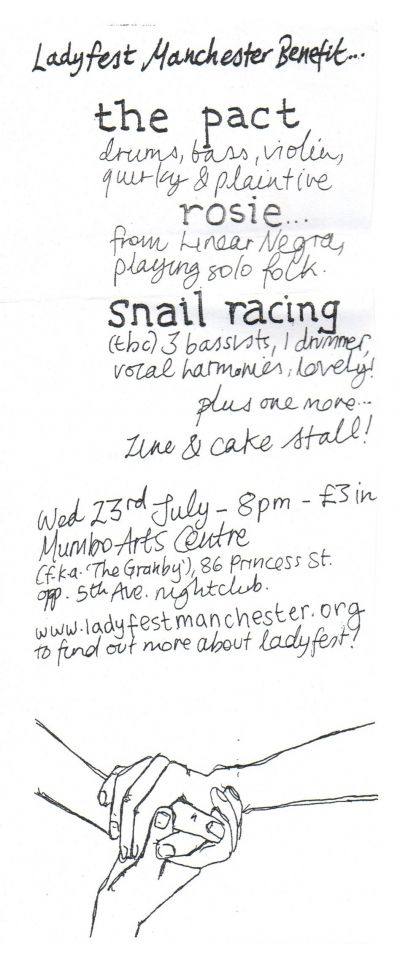 Ladyfest Manchester Benefit...
the pact
drums, bass, violin,
quirky & plaintive
rosie...
from Linear Negra,
playing solo folk.
snail racing
(tbc) 3 bassists, 1 drummer,
vocal harmonies, lovely!
plus one more...
zine & cake stall!
Wed 23rd July - 8pm - £3 in
Mumbo Arts Centre
(f.k.a. 'The Granby'), 86 Princess St.
opp. 5th Ave. nightclub.
www.ladyfestmanchester.org
to find out more about ladyfest!